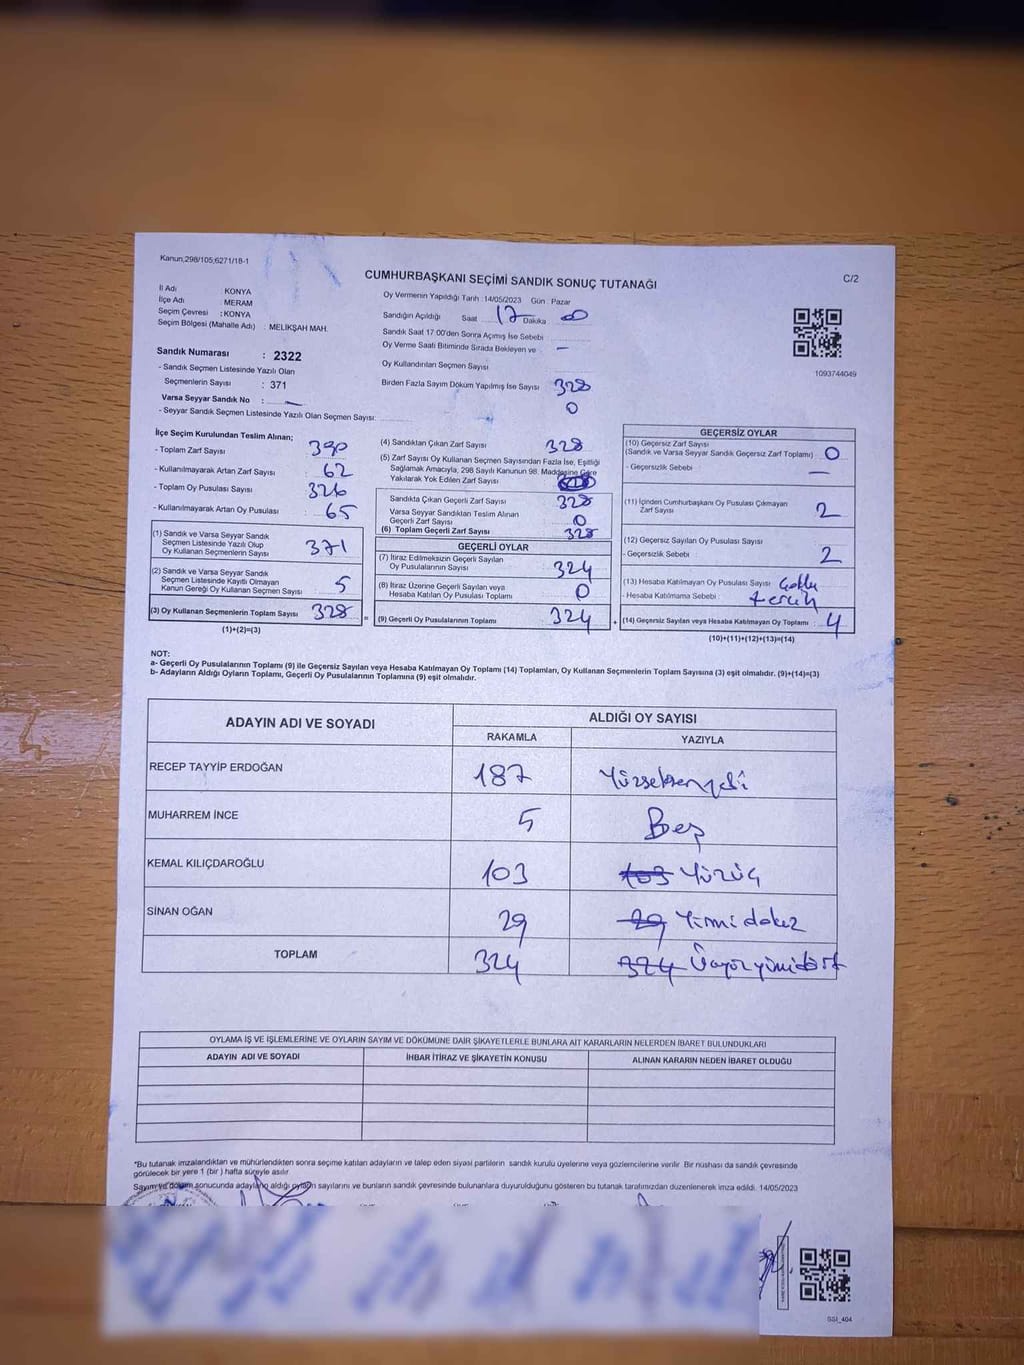 Kanun,298/105,6271/18-1
CUMHURBAŞKANI SEÇİMİ SANDIK SONUÇ TUTANAĞI
C/2
İl Adı : KONYA
İlçe Adı : MERAM
Seçim Çevresi : KONYA
Seçim Bölgesi (Mahalle Adı) : MELİKŞAH MAH.
Sandık Numarası : 2322
- Sandık Seçmen Listesinde Yazılı Olan
Seçmenlerin Sayısı : 371
Varsa Seyyar Sandık No : —
- Seyyar Sandık Seçmen Listesinde Yazılı Olan Seçmen Sayısı:
Oy Vermenin Yapıldığı Tarih :14/05/2023 Gün : Pazar
Sandığın Açıldığı Saat 17 Dakika
Sandık Saat 17:00'den Sonra Açılmış İse Sebebi
Oy Verme Saati Bitiminde Sırada Bekleyen ve —
Oy Kullandırılan Seçmen Sayısı
Birden Fazla Sayım Döküm Yapılmış İse Sayısı 328
0
1093744049
İlçe Seçim Kurulundan Teslim Alınan;
- Toplam Zarf Sayısı 390
- Kullanılmayarak Artan Zarf Sayısı 62
- Toplam Oy Pusulası Sayısı 326
- Kullanılmayarak Artan Oy Pusulası 65
(1) Sandık ve Varsa Seyyar Sandık
Seçmen Listesinde Yazılı Olup
Oy Kullanan Seçmenlerin Sayısı 371
(2) Sandık ve Varsa Seyyar Sandık
Seçmen Listesinde Kayıtlı Olmayan
Kanun Gereği Oy Kullanan Seçmen Sayısı 5
(3) Oy Kullanan Seçmenlerin Toplam Sayısı 328 =
(1)+(2)=(3)
(4) Sandıktan Çıkan Zarf Sayısı 328
(5) Zarf Sayısı Oy Kullanan Seçmen Sayısından Fazla İse, Eşitliği
Sağlamak Amacıyla, 298 Sayılı Kanunun 98. Maddesine Göre
Yakılarak Yok Edilen Zarf Sayısı
Sandıkta Çıkan Geçerli Zarf Sayısı 328
Varsa Seyyar Sandıktan Teslim Alınan
Geçerli Zarf Sayısı 0
(6) Toplam Geçerli Zarf Sayısı 328
GEÇERLİ OYLAR
(7) İtiraz Edilmeksizin Geçerli Sayılan
Oy Pusulalarının Sayısı 324
(8) İtiraz Üzerine Geçerli Sayılan veya
Hesaba Katılan Oy Pusulası Toplamı 0
(9) Geçerli Oy Pusulalarının Toplamı 324 +
GEÇERSİZ OYLAR
(10) Geçersiz Zarf Sayısı
(Sandık ve Varsa Seyyar Sandık Geçersiz Zarf Toplamı) 0
- Geçersizlik Sebebi —
(11) İçinden Cumhurbaşkanı Oy Pusulası Çıkmayan
Zarf Sayısı 2
(12) Geçersiz Sayılan Oy Pusulası Sayısı
- Geçersizlik Sebebi 2
(13) Hesaba Katılmayan Oy Pusulası Sayısı
- Hesaba Katılmama Sebebi : tercih
(14) Geçersiz Sayılan veya Hesaba Katılmayan Oy Toplamı : 4
(10)+(11)+(12)+(13)=(14)
NOT:
a- Geçerli Oy Pusulalarının Toplamı (9) ile Geçersiz Sayılan veya Hesaba Katılmayan Oy Toplamı (14) Toplamları, Oy Kullanan Seçmenlerin Toplam Sayısına (3) eşit olmalıdır. (9)+(14)=(3)
b- Adayların Aldığı Oyların Toplamı, Geçerli Oy Pusulalarının Toplamına (9) eşit olmalıdır.
ADAYIN ADI VE SOYADI ALDIĞI OY SAYISI
RAKAMLA YAZIYLA
RECEP TAYYİP ERDOĞAN 187 Yüzseksenyedi
MUHARREM İNCE 5 Beş
KEMAL KILIÇDAROĞLU 103 103 Yüzüç
SİNAN OĞAN 29 29 Yirmidokuz
TOPLAM 324 324 Üçyüzyirmidört
OYLAMA İŞ VE İŞLEMLERİNE VE OYLARIN SAYIM VE DÖKÜMÜNE DAİR ŞİKAYETLERLE BUNLARA AİT KARARLARIN NELERDEN İBARET BULUNDUKLARI
ADAYIN ADI VE SOYADI İHBAR İTİRAZ VE ŞİKAYETİN KONUSU ALINAN KARARIN NEDEN İBARET OLDUĞU
*Bu tutanak imzalandıktan ve mühürlendikten sonra seçime katılan adayların ve talep eden siyasi partilerin sandık kurulu üyelerine veya gözlemcilerine verilir. Bir nüshası da sandık çevresinde
görülecek bir yere 1 (bir) hafta süreyle asılır.
Sayım ve döküm sonucunda adayların aldığı oyların sayılarını ve bunların sandık çevresinde bulunanlara duyurulduğunu gösteren bu tutanak tarafımızdan düzenlenerek imza edildi. 14/05/2023
SSI_404